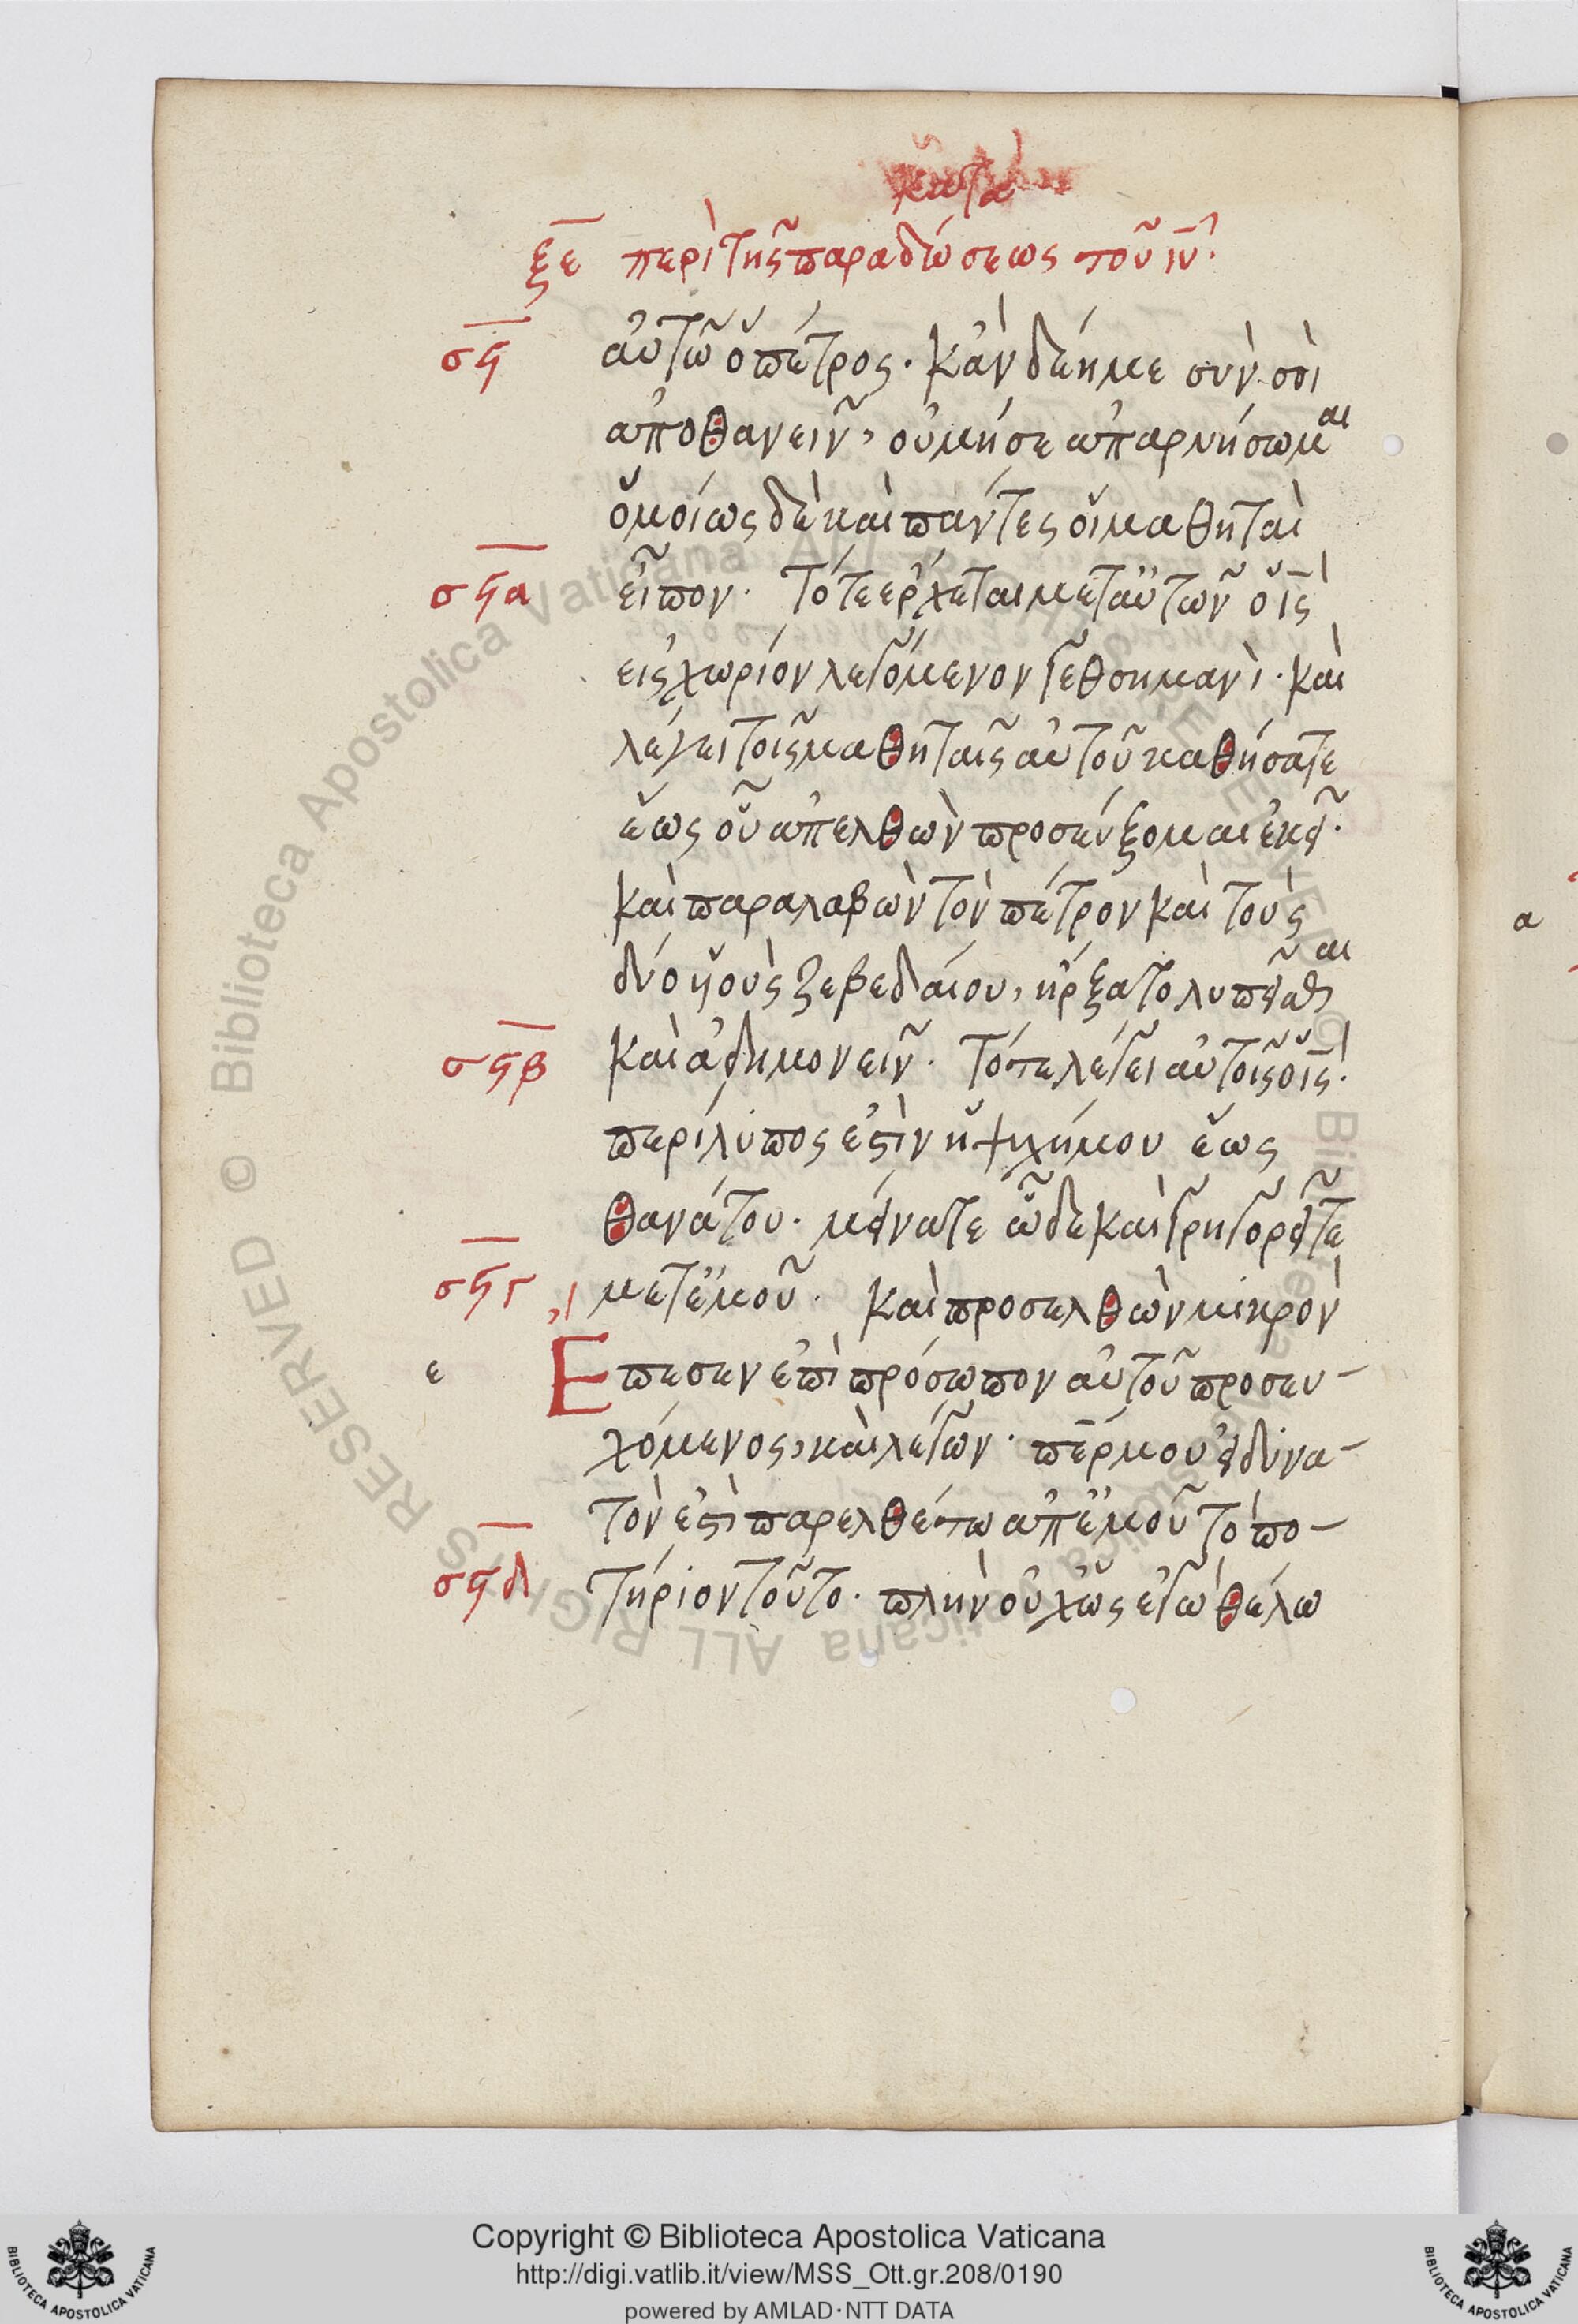 κατὰ
ξε περὶ τῆς παραδώσεως τοῦ ιυ.
σϟ αὐτῶ ὁ πέτρος. κἀν δέη με σὺν σοὶ
ἀποθανεῖν, οὐ μή σε ἀπαρνήσωμαι
ὁμοίως δὲ καὶ πάντες οἱ μαθηταὶ
σϟα εἶπον. Τότε ἔρχεται μετ αὐτῶν ὁ ις
εἰς χωρίον λεγόμενον γεθσημανὶ. καὶ
λέγει τοῖς μαθηταῖς αὐτοῦ καθήσατε
ἕως οὗ ἀπελθὼν προσεύξομαι ἐκεῖ.
καὶ παραλαβὼν τὸν πέτρον καὶ τοὺς
δύο ὑοὺς ζεβεδαίου, ἤρξατο λυπεῖσθαι
σϟβ καὶ ἀδημονεῖν. Τότε λέγει αὐτοῖς ὁ ις.
περίλυπος ἐστὶν ἡ ψυχή μου ἕως
θανάτου. μείνατε ὧδε καὶ γρηγορεῖτε
σϟγ μετ ἐμοῦ. καὶ προσελθὼν μικρὸν
ε Επεσεν ἐπὶ πρόσωπον αὐτοῦ προσευ-
χόμενος, καὶ λέγων. περ μου εἰ δύνα-
τὸν ἐστὶ παρελθέτω ἀπ ἐμοῦ τὸ πο-
σϟδ τήριον τοῦτο. πλὴν οὐχ ὡς ἐγὼ θέλω
α
© Biblioteca Apostolica Vaticana ALL RIGHTS RESERVED
© Biblioteca Apostolica Vaticana ALL RIGHTS RESERVED
Copyright © Biblioteca Apostolica Vaticana
http://digi.vatlib.it/view/MSS_Ott.gr.208/0190
powered by AMLAD·NTT DATA
BIBLIOTECA APOSTOLICA VATICANA
BIBLIOTECA APOSTOLICA VATICANA